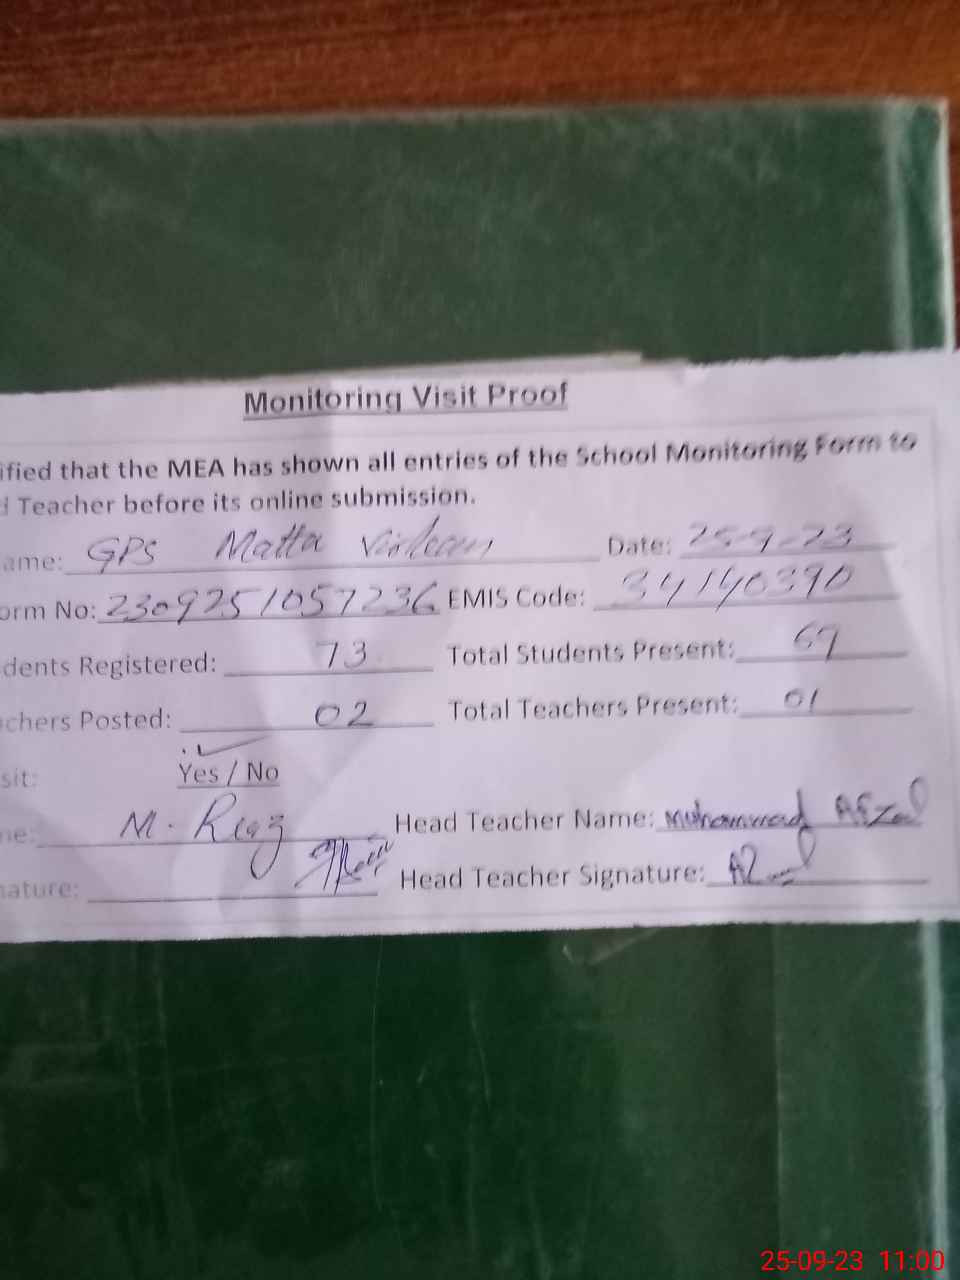 Monitoring Visit Proof
ified that the MEA has shown all entries of the School Monitoring Form to
d Teacher before its online submission.
ame: GPS Matta Date: 25-9-23
orm No: 2309251057236 EMIS Code: 34140390
dents Registered: 73 Total Students Present: 69
achers Posted: 02 Total Teachers Present: 01
sit: Yes / No
ne: M. Riaz Head Teacher Name: Muhammad Afzal
nature: Head Teacher Signature:
25-09-23 11:00